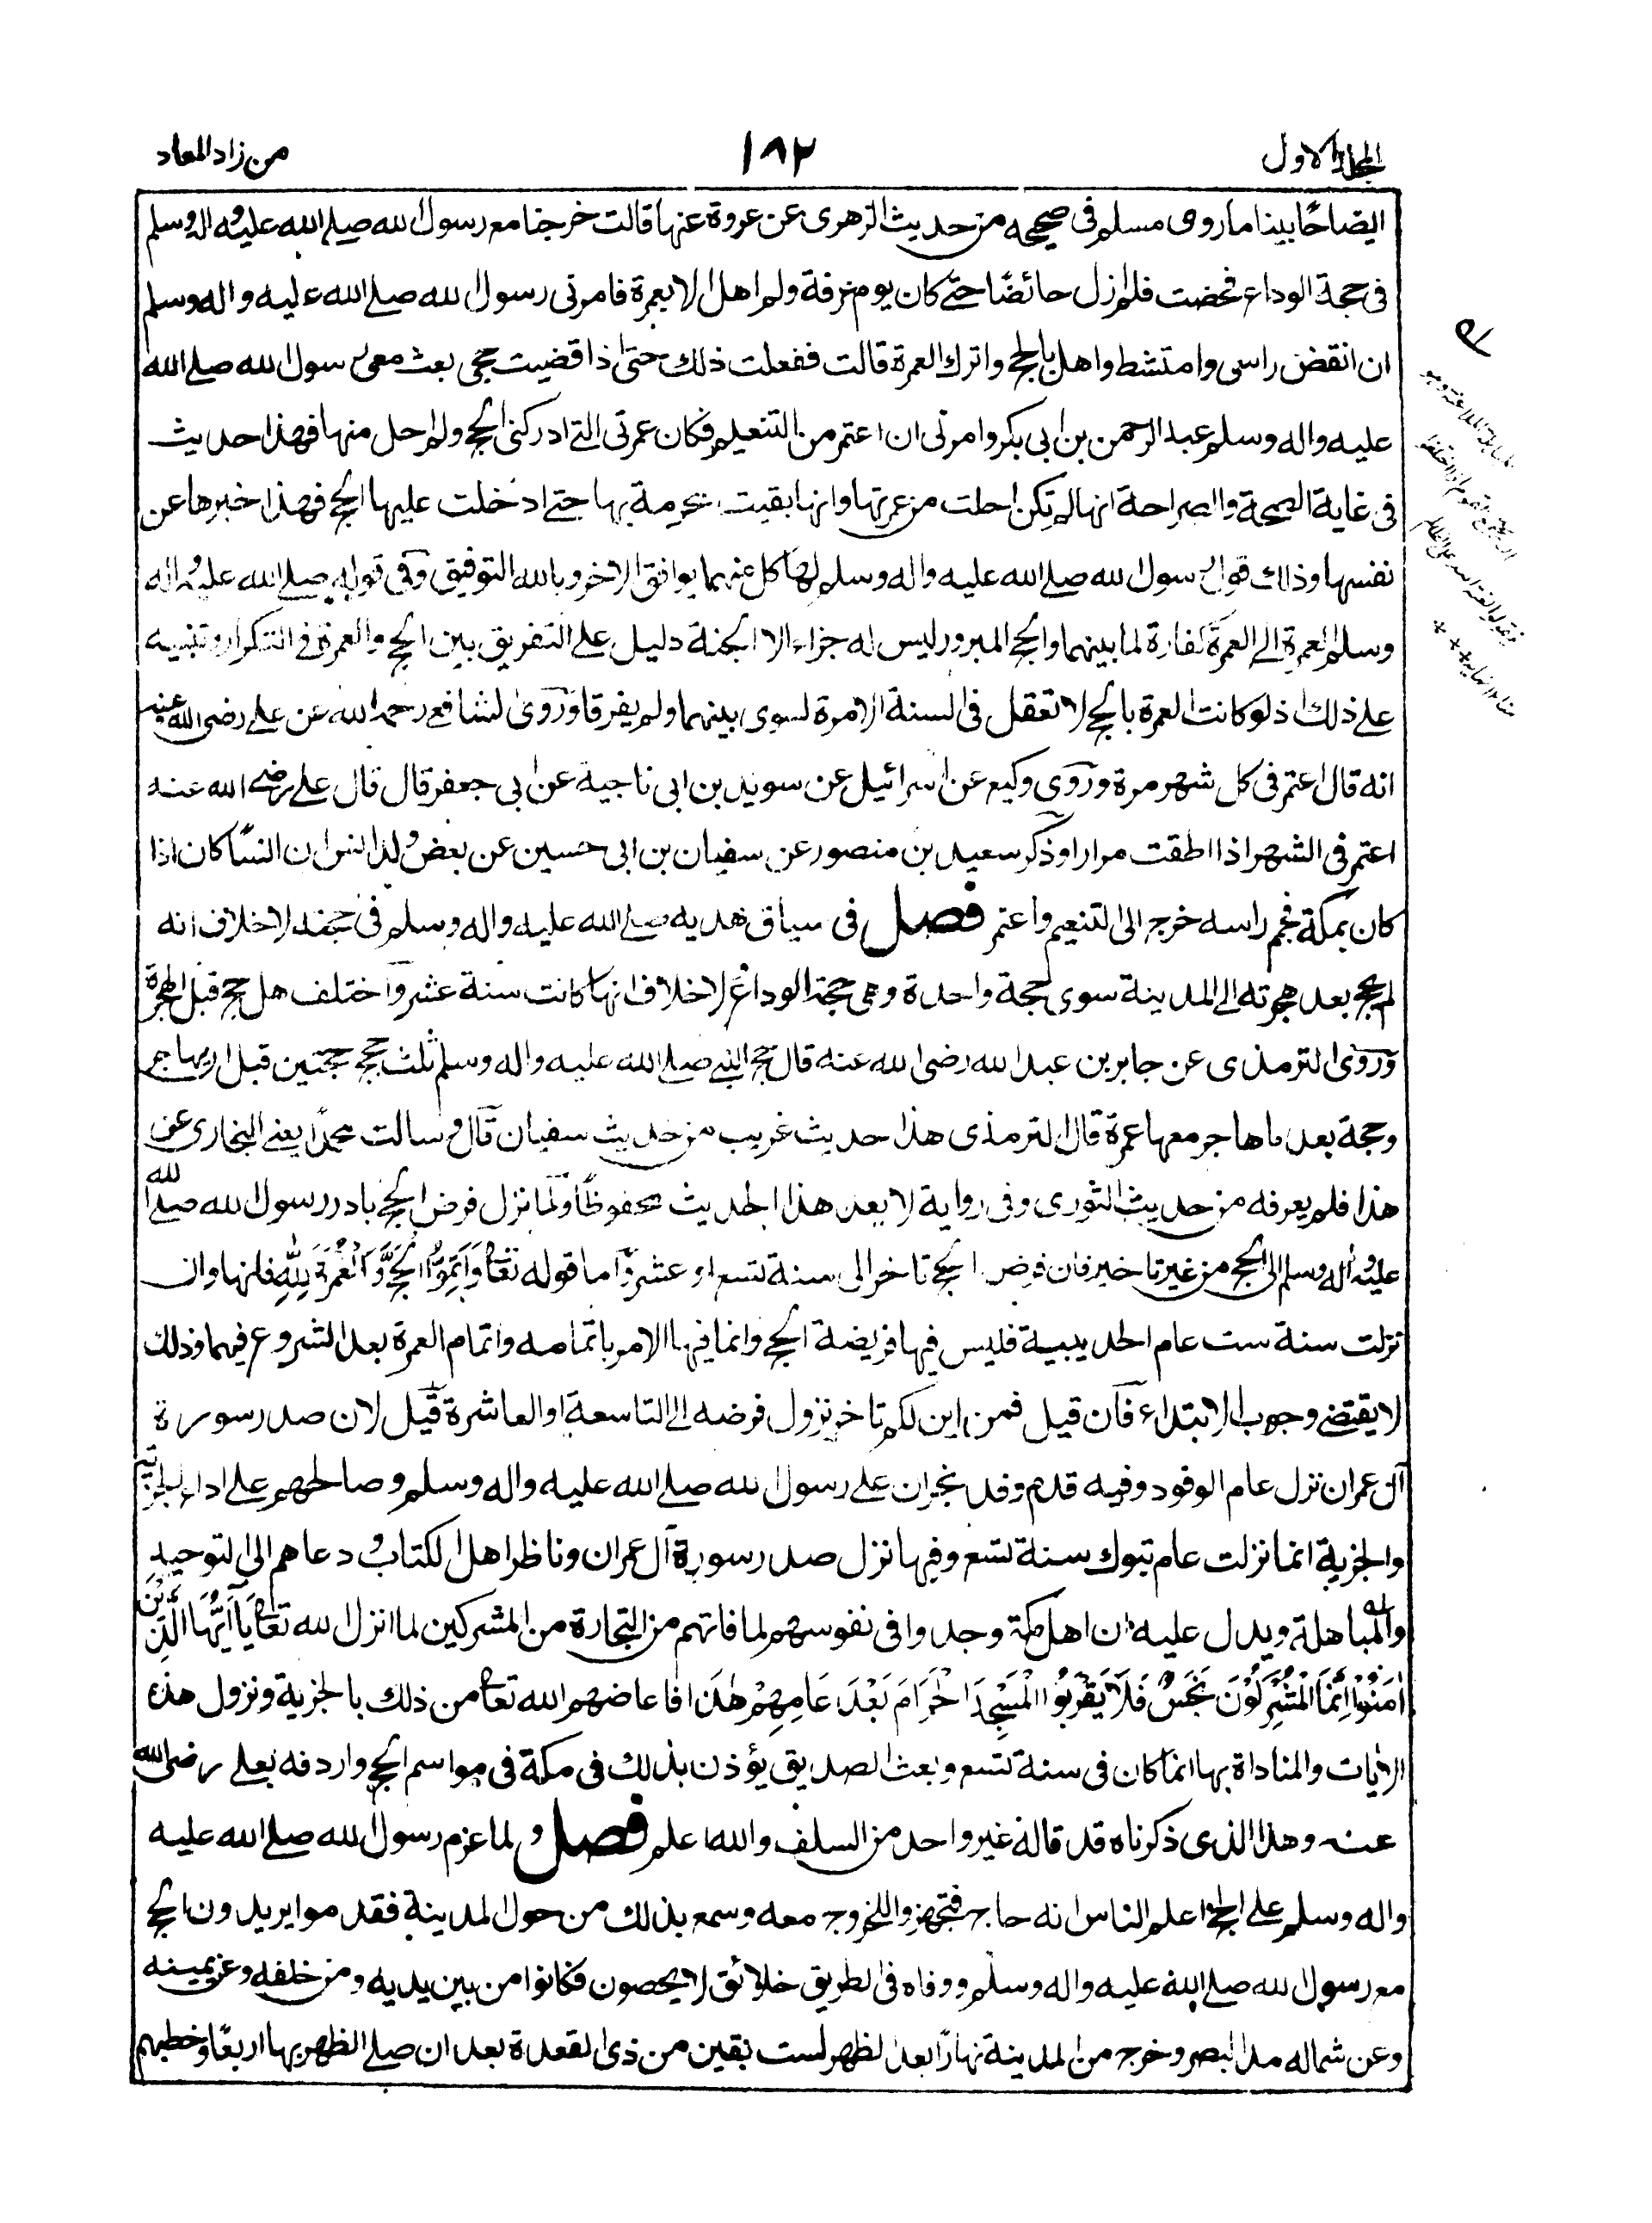 المجلد الاول
١٨٢
من زاد المعاد
ايضاحًا بينا ما روى مسلم فى صحيحه من حديث الزهرى عن عروة عنها قالت خرجنا مع رسول الله صلى الله عليه واله وسلم
فى حجة الوداع فحضت فلم ازل حائضًا حتى كان يوم عرفة ولم اهل الا بعمرة فامرنى رسول الله صلى الله عليه واله وسلم
ان انقض راسى وامتشط واهل بالحج واترك العمرة قالت ففعلت ذلك حتى اذا قضيت حجى بعث معى رسول الله صلى الله
عليه واله وسلم عبد الرحمن بن ابى بكر وامرنى ان اعتمر من التنعيم مكان عمرتى التى ادركنى الحج ولم احل منها فهذا حديث
فى غاية الصحة والصراحة انها لم تكن احلت من عمرتها وانها بقيت محرمة بها حتى ادخلت عليها الحج فهذا خبرها عن
نفسها وذلك قول رسول الله صلى الله عليه واله وسلم لها كل منهما يوافق الاخر وبالله التوفيق وفى قوله صلى الله عليه واله
وسلم العمرة الى العمرة كفارة لما بينهما والحج المبرور ليس له جزاء الا الجنة دليل على التفريق بين الحج والعمرة فى التكرار وتنبيه
على ذلك اذ لو كانت العمرة بالحج لا تفعل فى السنة الا مرة لسوى بينهما ولم يفرق وروى الشافعى رحمه الله عن على رضى الله عنه
انه قال اعتمر فى كل شهر مرة وروى وكيع عن اسرائيل عن سويد بن ابى ناجية عن ابى جعفر قال قال على رضى الله عنه
اعتمر فى الشهر اذا اطقت مرارا وذكر سعيد بن منصور عن سفيان بن ابى حسين عن بعض ولد انس ان انسًا كان اذا
كان بمكة فحمم راسه خرج الى التنعيم واعتمر فصل فى سياق هديه صلى الله عليه واله وسلم فى حجته لا خلاف انه
لم يحج بعد هجرته الى المدينة سوى حجة واحدة وهى حجة الوداع ولا خلاف انها كانت سنة عشر واختلف هل حج قبل الهجرة
وروى الترمذى عن جابر بن عبد الله رضى الله عنه قال حج النبى صلى الله عليه واله وسلم ثلث حجج حجتين قبل ان يهاجر
وحجة بعد ما هاجر معها عمرة قال الترمذى هذا حديث غريب من حديث سفيان قال وسالت محمدًا يعنى البخارى عن
هذا فلم يعرفه من حديث الثورى وفى رواية لا يعد هذا الحديث محفوظًا ولما نزل فرض الحج بادر رسول الله صلى الله
عليه واله وسلم الى الحج من غير تاخير فان فرض الحج تاخر الى سنة تسع او عشر واما قوله تعالى وَاَتِمُّوا الْحَجَّ وَالْعُمْرَةَ لِلّٰهِ فانها وان
نزلت سنة ست عام الحديبية فليس فيها فريضة الحج وانما فيها الامر باتمامه واتمام العمرة بعد الشروع فيهما وذلك
لا يقتضى وجوب الابتداء فان قيل فمن اين لكم تاخر نزول فرضه الى التاسعة او العاشرة قيل لان صدر سورة
آل عمران نزل عام الوفود وفيه قدم وفد نجران على رسول الله صلى الله عليه واله وسلم وصالحهم على اداء الجزية
والجزية انما نزلت عام تبوك سنة تسع وفيها نزل صدر سورة آل عمران وناظر اهل الكتاب ودعاهم الى التوحيد
والمباهلة ويدل عليه ان اهل مكة وجدوا فى نفوسهم لما فاتهم من التجارة من المشركين لما انزل الله تعالى يَآ اَيُّهَا الَّذِيْنَ
اٰمَنُوْا اِنَّمَا الْمُشْرِكُوْنَ نَجَسٌ فَلَا يَقْرَبُوا الْمَسْجِدَ الْحَرَامَ بَعْدَ عَامِهِمْ هٰذَا فاعاضهم الله تعالى من ذلك بالجزية ونزول هذه
الآيات والمناداة بها انما كان فى سنة تسع وبعث الصديق يؤذن بذلك فى مكة فى مواسم الحج واردفه بعلى رضى الله
عنه وهذا الذى ذكرناه قد قاله غير واحد من السلف والله اعلم فصل ولما عزم رسول الله صلى الله عليه
واله وسلم على الحج اعلم الناس انه حاج فتجهزوا للخروج معه وسمع بذلك من حول المدينة فقدموا يريدون الحج
مع رسول الله صلى الله عليه واله وسلم ووفاه فى الطريق خلائق لا يحصون فكانوا من بين يديه ومن خلفه وعن يمينه
وعن شماله مد البصر وخرج من المدينة نهارًا بعد الظهر لست بقين من ذى القعدة بعد ان صلى الظهر بها اربعًا وخطبهم